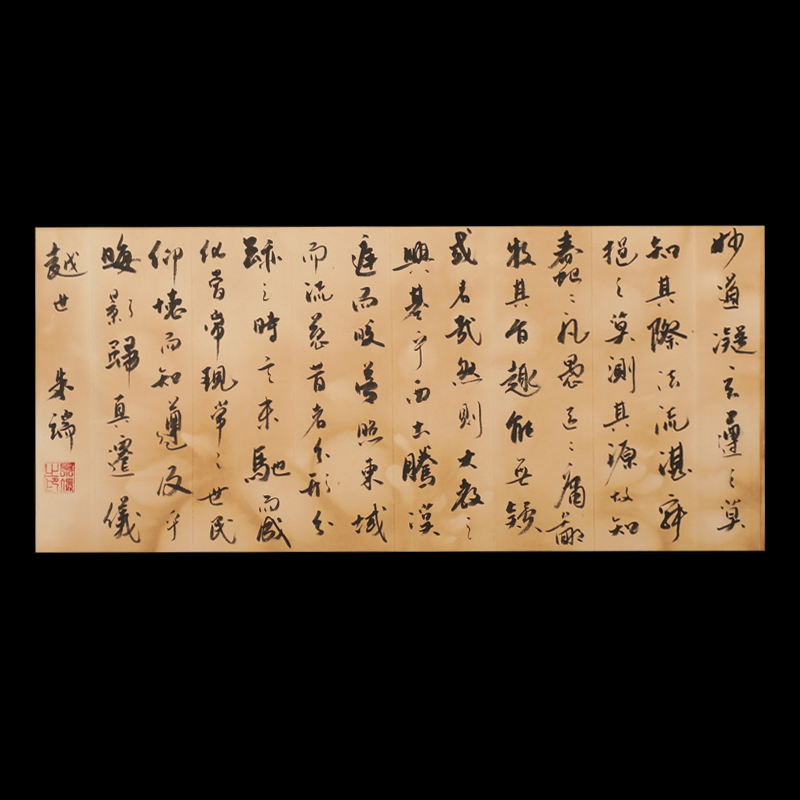 妙道凝玄遵之莫
知其際法流湛寂
挹之莫測其源故知
蠢〻凡愚區〻庸鄙
投其旨趣能無疑
惑者哉然則大教之
興基乎西土騰漢
庭而皎夢照東域
而流慈昔者分形分
跡之時言未馳而成
化當常現常之世民
仰德而知遵及乎
晦影歸真遷儀
越世 朱瑞